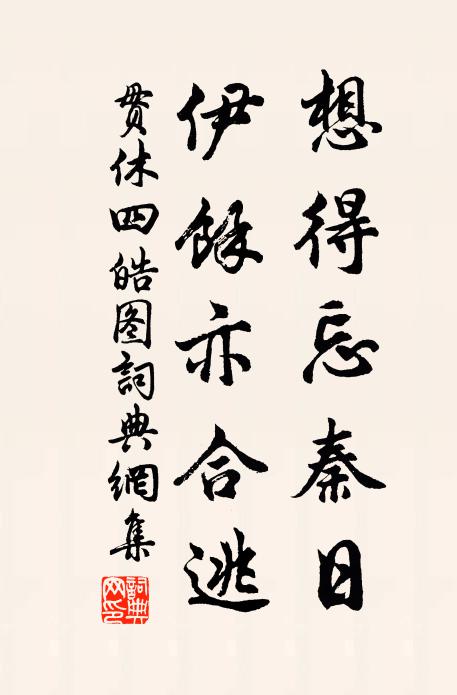 想得忘秦日
伊餘亦合逃
貫休四皓图詞典網集
詞典网印